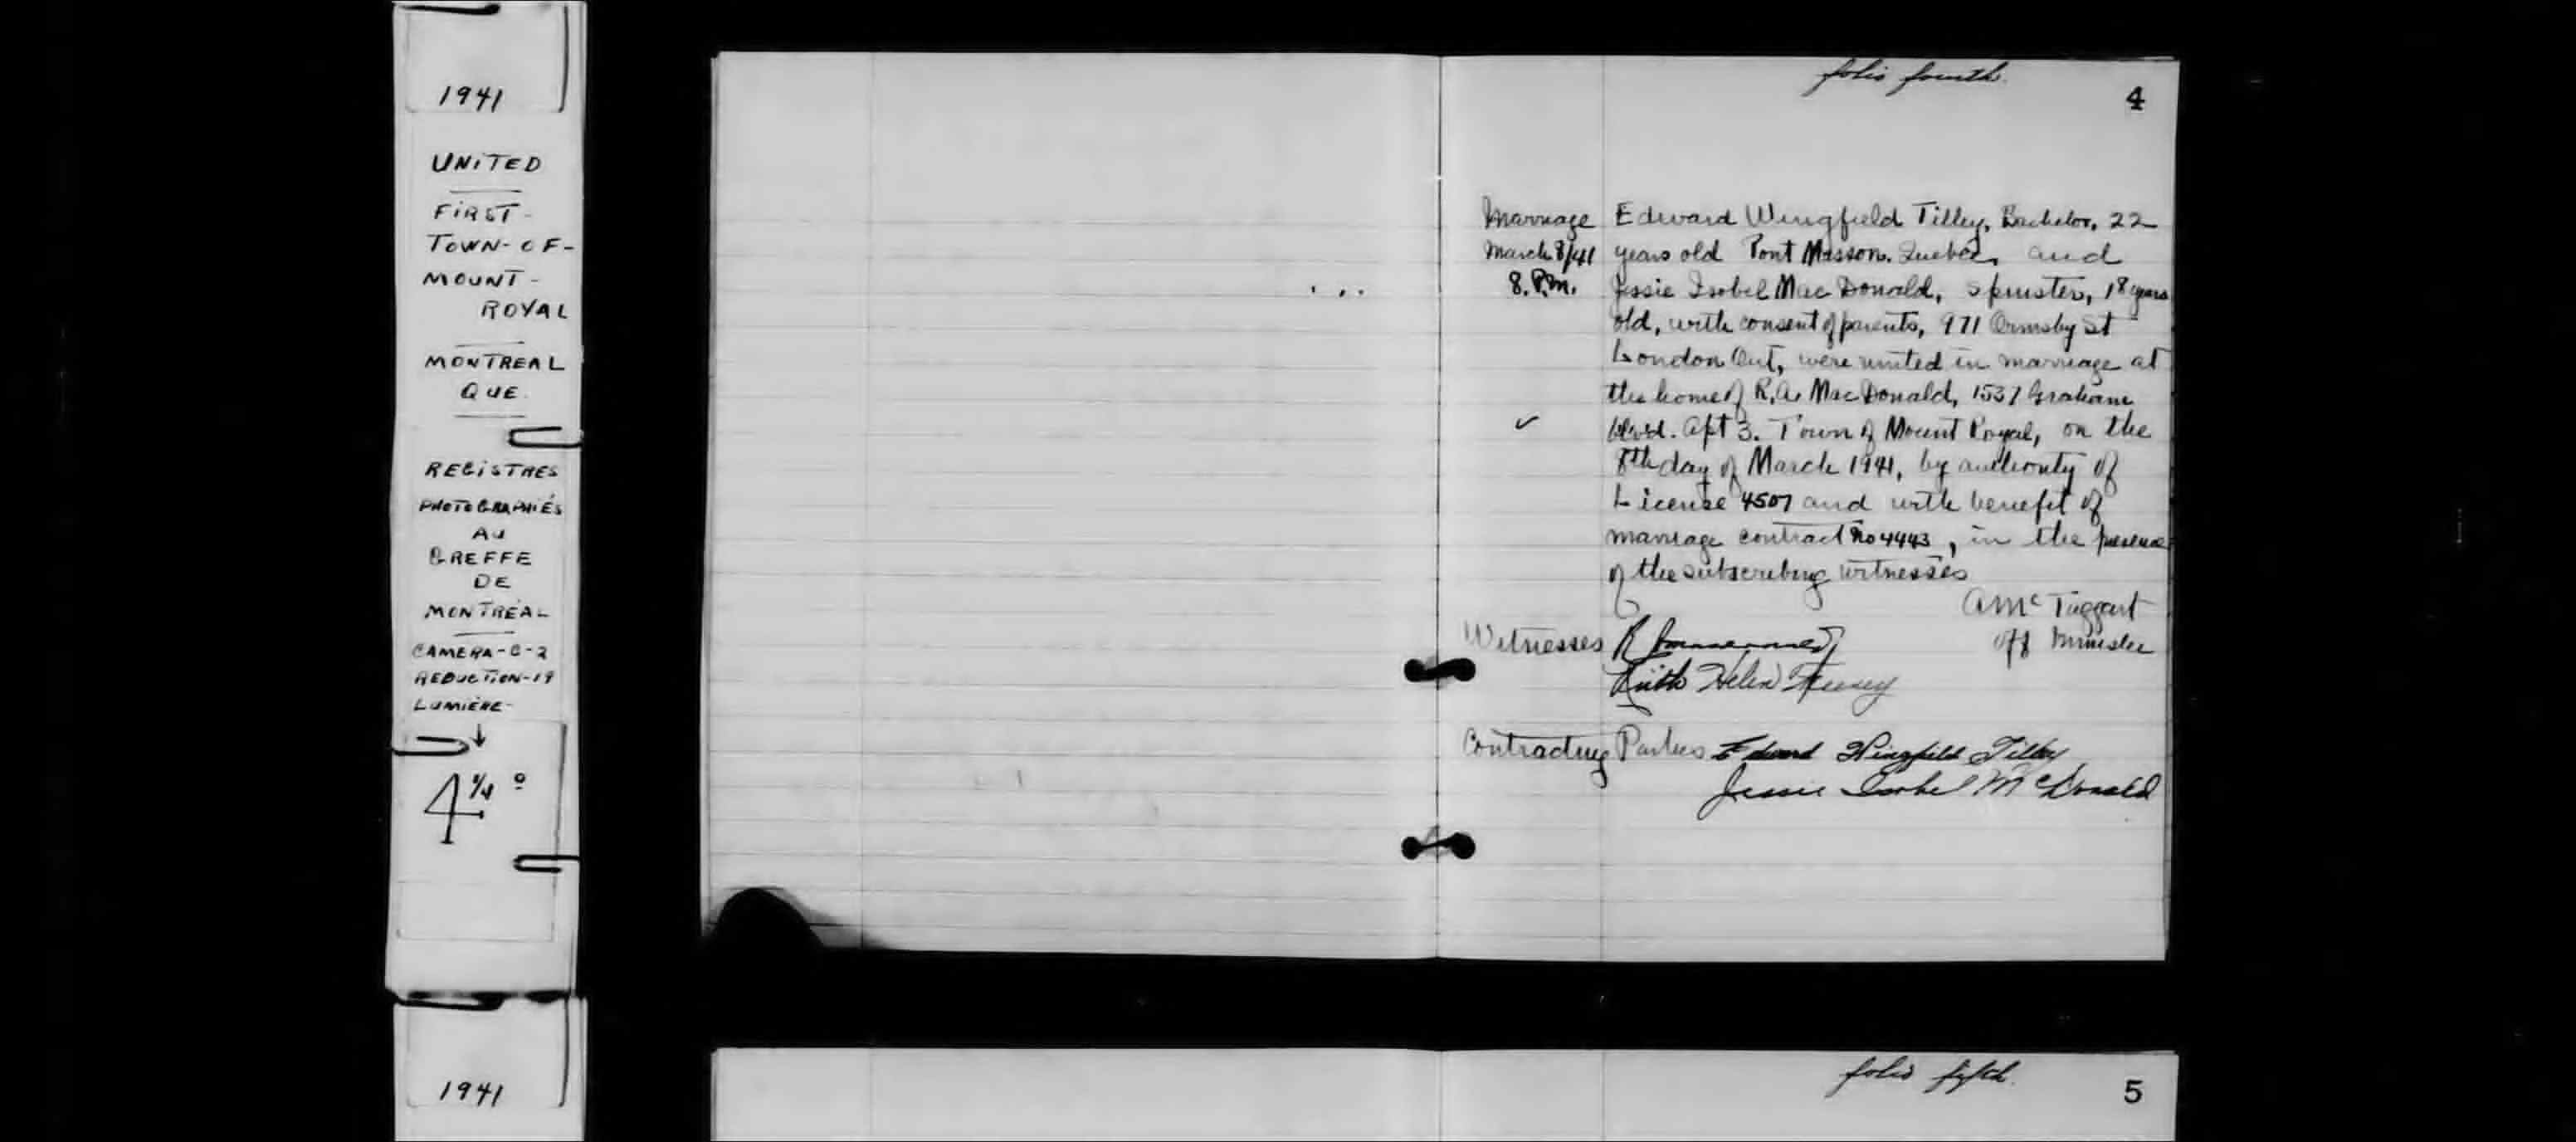 1941
UNITED
FIRST-
TOWN-OF-
MOUNT-
ROYAL
MONTREAL
QUE.
REGISTRES
PHOTOGRAPHIÉS
AU
GREFFE
DE
MONTRÉAL
CAMERA-C-2
REDUCTION-19
LUMIÈRE-
4 1/4 º
1941
folio fourth.
4
Marriage
March 8/41
8. P.M.
Edward Wingfield Tilley, Bachelor, 22
years old Pont Masson. Quebec, and
Jessie Isobel MacDonald, Spinster, 18 years
old, with consent of parents, 971 Ormsby St
London Ont, were united in marriage at
the home of R.A. MacDonald, 1537 Graham
Blvd. Apt 3. Town of Mount Royal, on the
8th day of March 1941, by authority of
License 4507 and with benefit of
marriage contract No 4443, in the presence
of the subscribing witnesses
A Mc Taggart
off Minister
Witnesses R
Ruth Helen
Contracting Parties Edward Wingfield Tilley
Jessie Isobel McDonald
folio fifth.
5